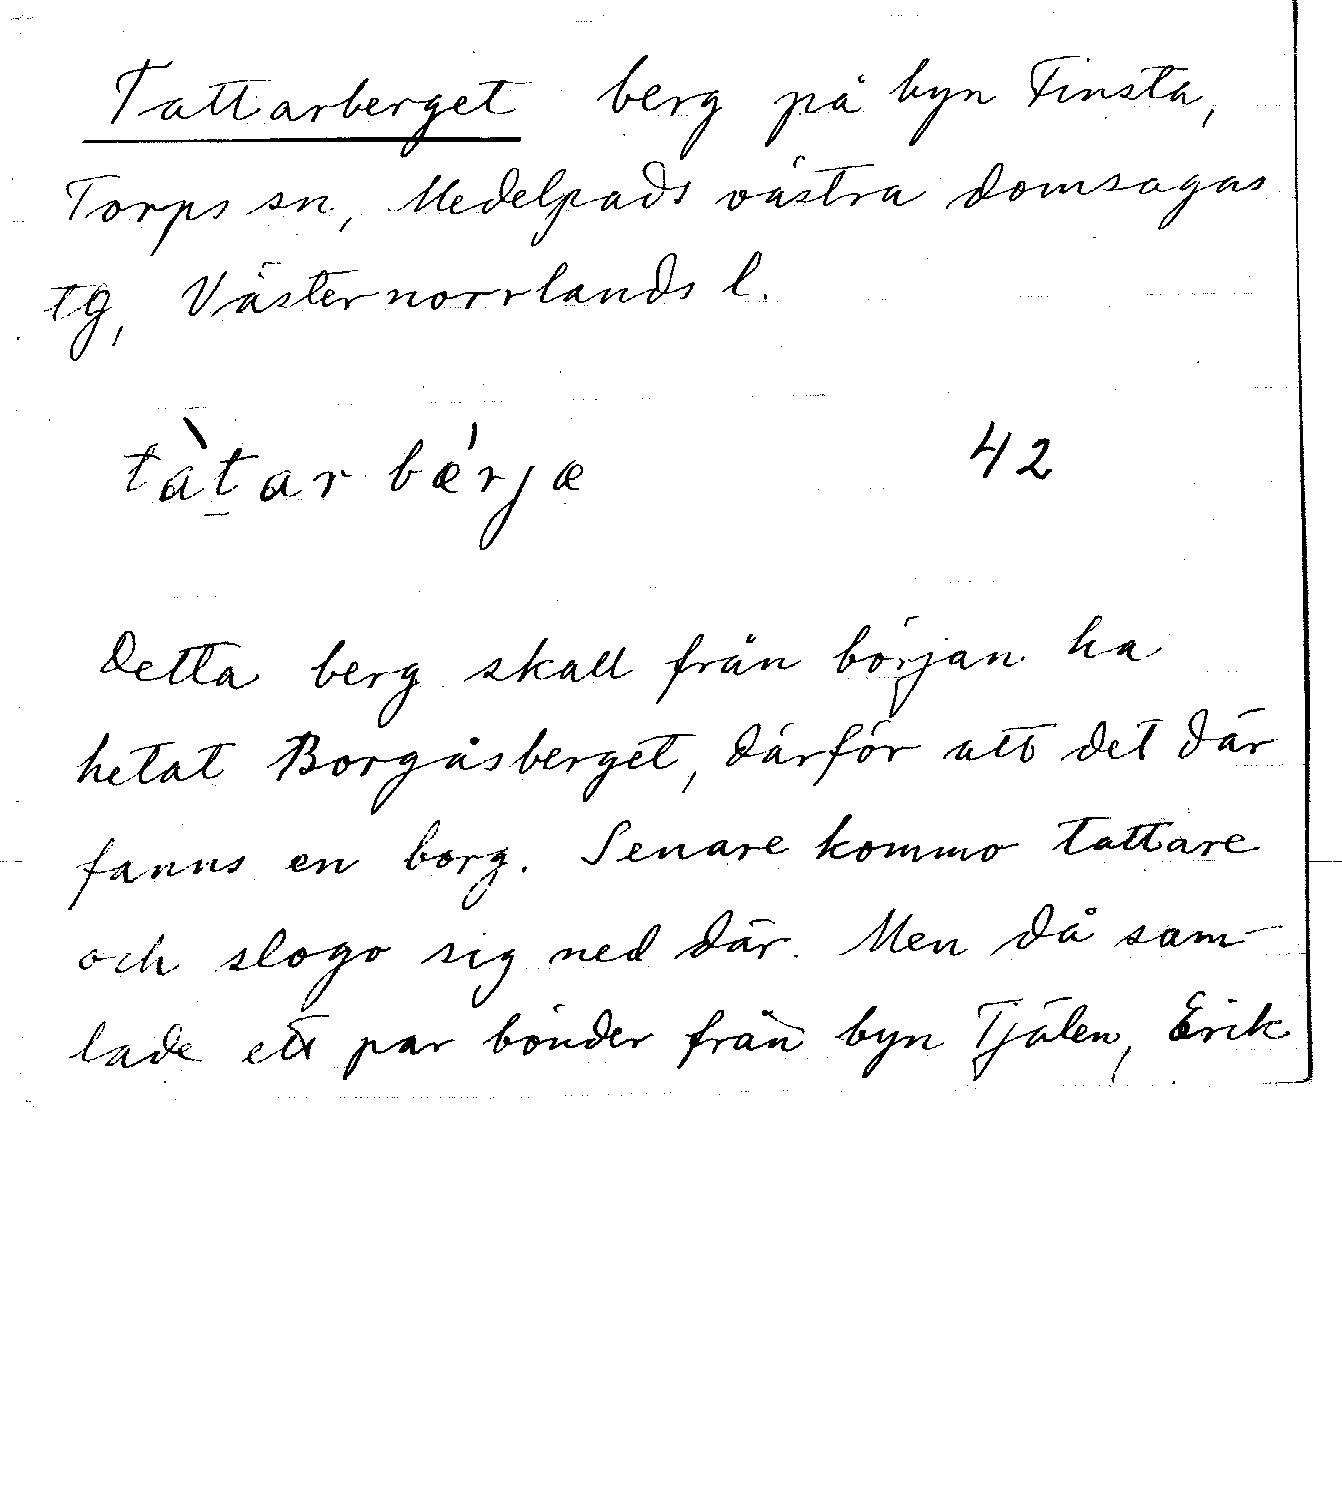 Tattarberget berg på byn Finsta,
Torps sn, Medelpads västra domsagas
tg, Västernorrlands l.
tàt̲ar bǽrjæ 42
Detta berg skall från början ha
hetat Borgåsberget, därför att det där
fanns en borg. Senare kommo tattare
och slogo sig ned där. Men då sam-
lade ett par bönder från byn Tjälen, Erik